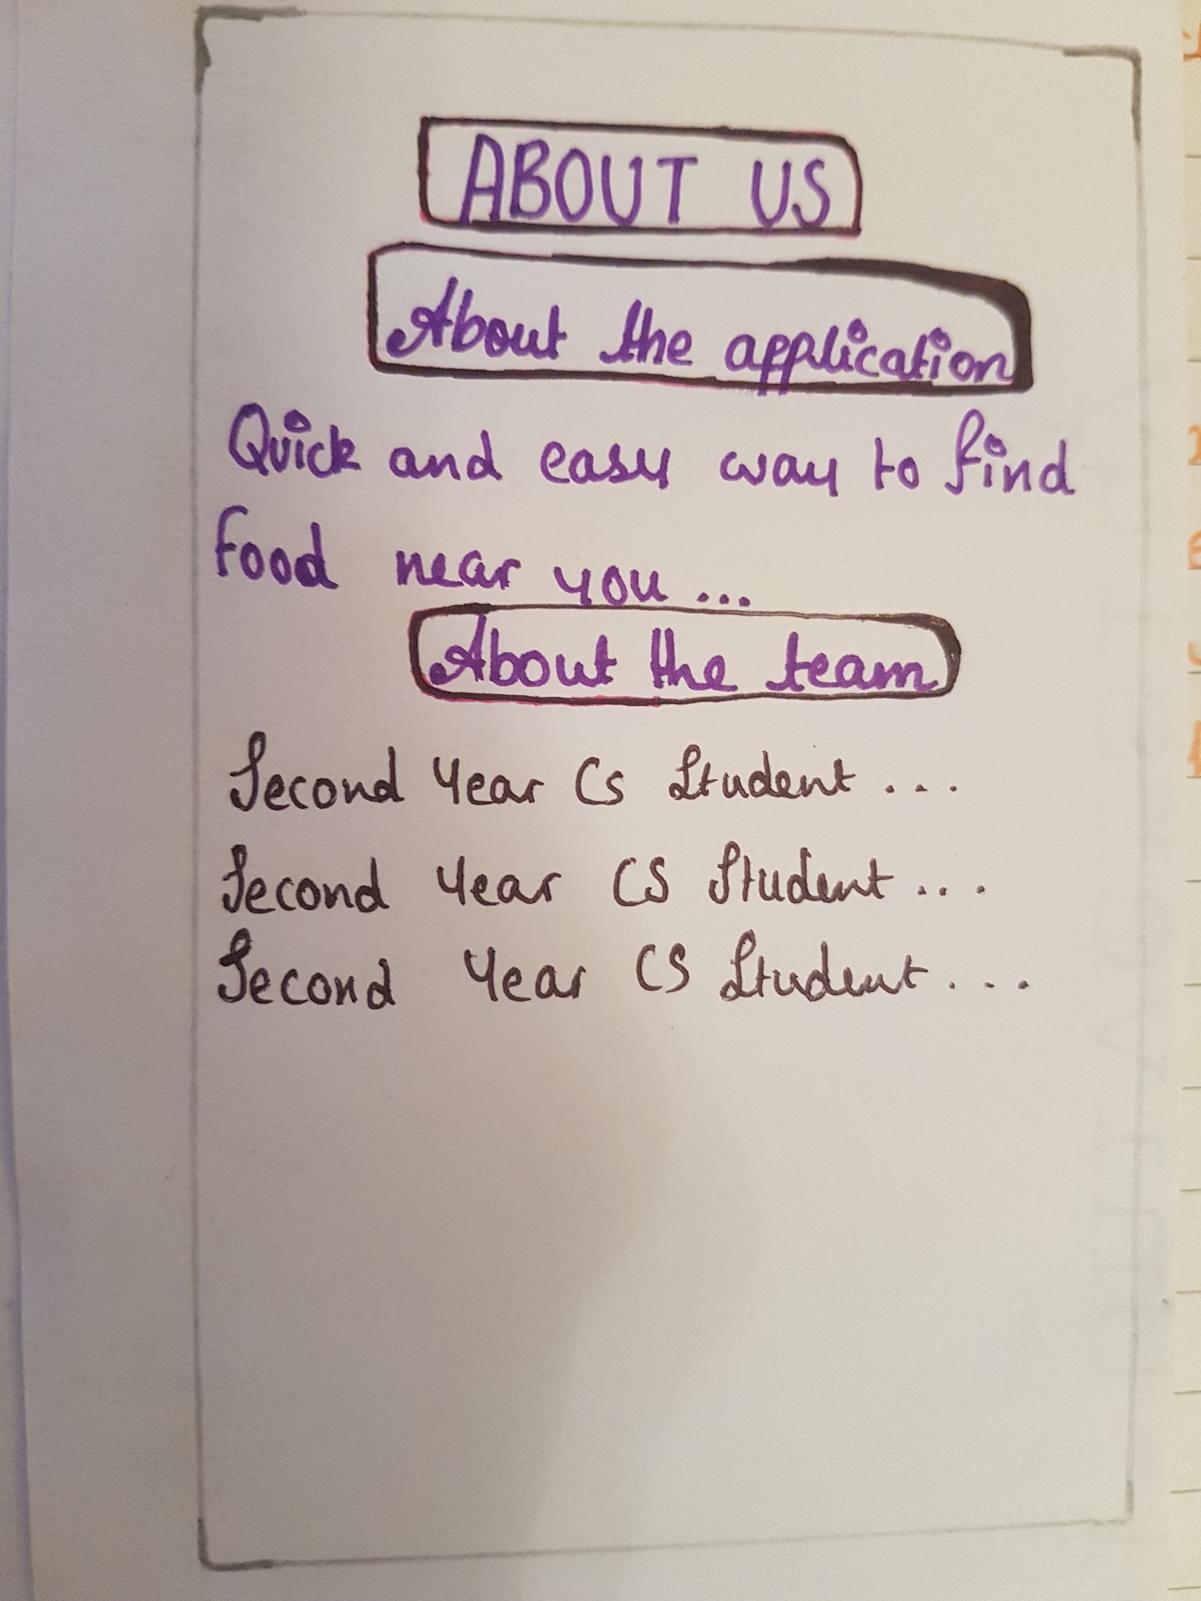 ABOUT US
About the application
Quick and easy way to find
food near you ...
About the team
Second Year Cs Student ...
Second Year CS Student ...
Second Year CS Student ...